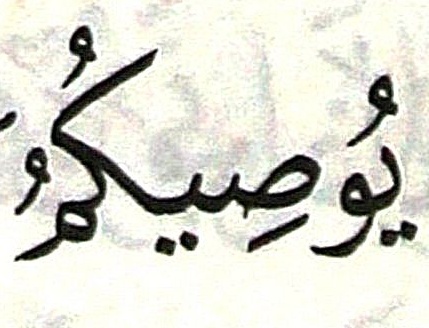 يُوصِيكُمُ